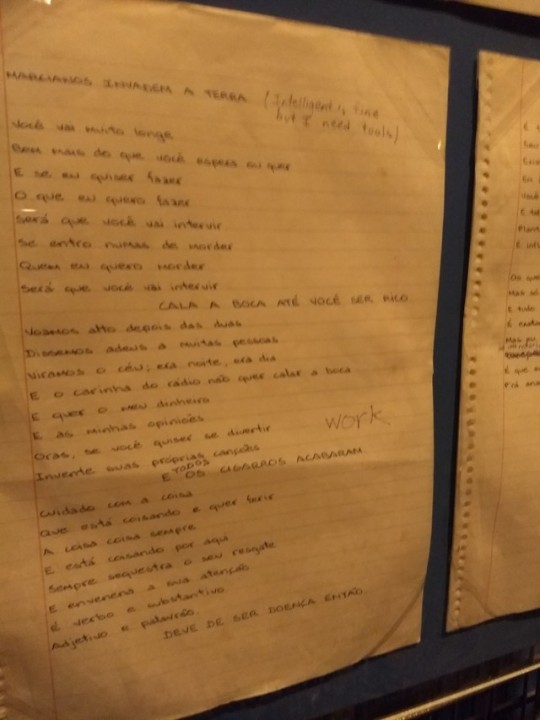 MARCIANOS INVADEM A TERRA (Intelligent is fine
but I need tools)
Você vai muito longe
Bem mais do que você espera ou quer
E se eu quiser fazer
O que eu quero fazer
Será que você vai intervir
Se entro numas de morder
Quem eu quero morder
Será que você vai intervir
CALA A BOCA ATÉ VOCÊ SER RICO
Voamos alto depois das duas
Dissemos adeus a muitas pessoas
Viramos o céu; era noite, era dia
E o carinha do rádio não quer calar a boca
E quer o meu dinheiro
E as minhas opiniões
Oras, se você quiser se divertir
Invente suas próprias canções
work
E TODOS OS CIGARROS ACABARAM
Cuidado com a coisa
Que está coisando e quer ferir
A coisa coisa sempre
E está coisando por aqui
Sempre sequestra o seu resgate
E envenena a sua atenção
É verbo e substantivo
Adjetivo e palavrão.
DEVE DE SER DOENÇA ENTÃO